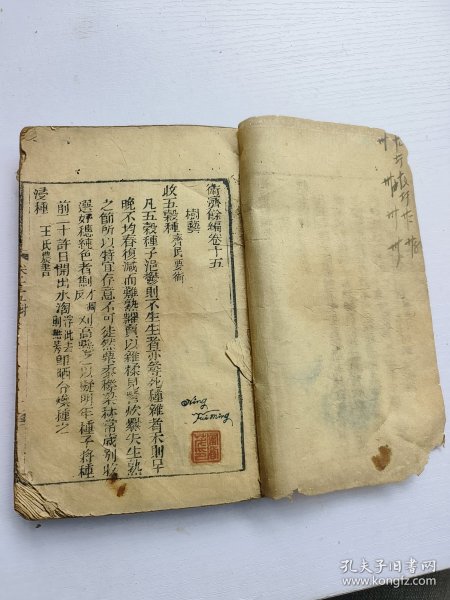 衞濟餘編卷十五
樹藝
收五穀種 齊民要術
凡五穀種子浥鬱則不生生者亦尋死種雜者禾則早
晚不均舂復減而難熟糶賣以雜糅見訾炊爨失生熟
之節所以特宜存意不可徒然粟黍穄粱秫常歲別收
選好穗純色者劁才彫反刈高懸之以擬明年種子將種
前二十許日開出水淘浮秕去則無莠即晒令燥種之
浸種 王氏農書
孔夫子旧书网
www.kongfz.com